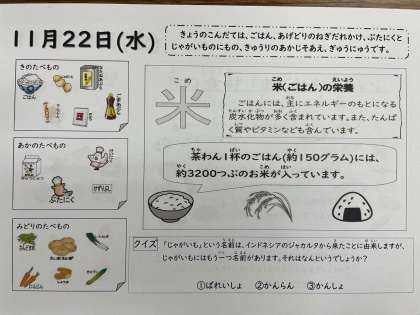 11月22日(水)
きょうのこんだては、ごはん、あげどりのねぎだれかけ、ぶたにくと
じゃがいものにもの、きゅうりのあかじそあえ、ぎゅうにゅうです。
きのたべもの
ごはん
あかのたべもの
ぶたにく
みどりのたべもの
にんじん
こめ
米
米(ごはん)の栄養
ごはんには、主にエネルギーのもとになる
炭水化物が多く含まれています。また、たんぱ
く質やビタミンなども含んでいます。
茶わん1杯のごはん(約150グラム)には、
約3200つぶのお米が入っています。
クイズ
「じゃがいも」という名前は、インドネシアのジャカルタから来たことに由来しますが、
じゃがいもにはもう一つ名前があります。それはなんというでしょうか?
①ばれいしょ ②かんらん ③かんしょ